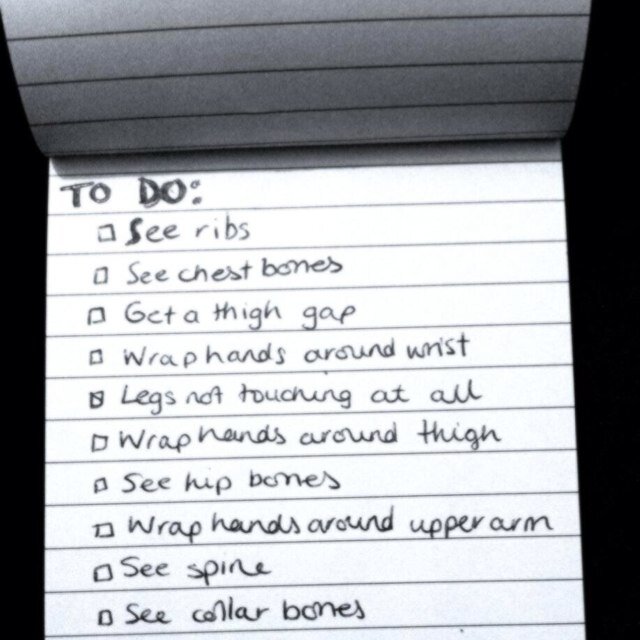 TO DO:
See ribs
See chest bones
Get a thigh gap
Wrap hands around wrist
Legs not touching at all
Wrap hands around thigh
See hip bones
Wrap hands around upper arm
See spine
See collar bones